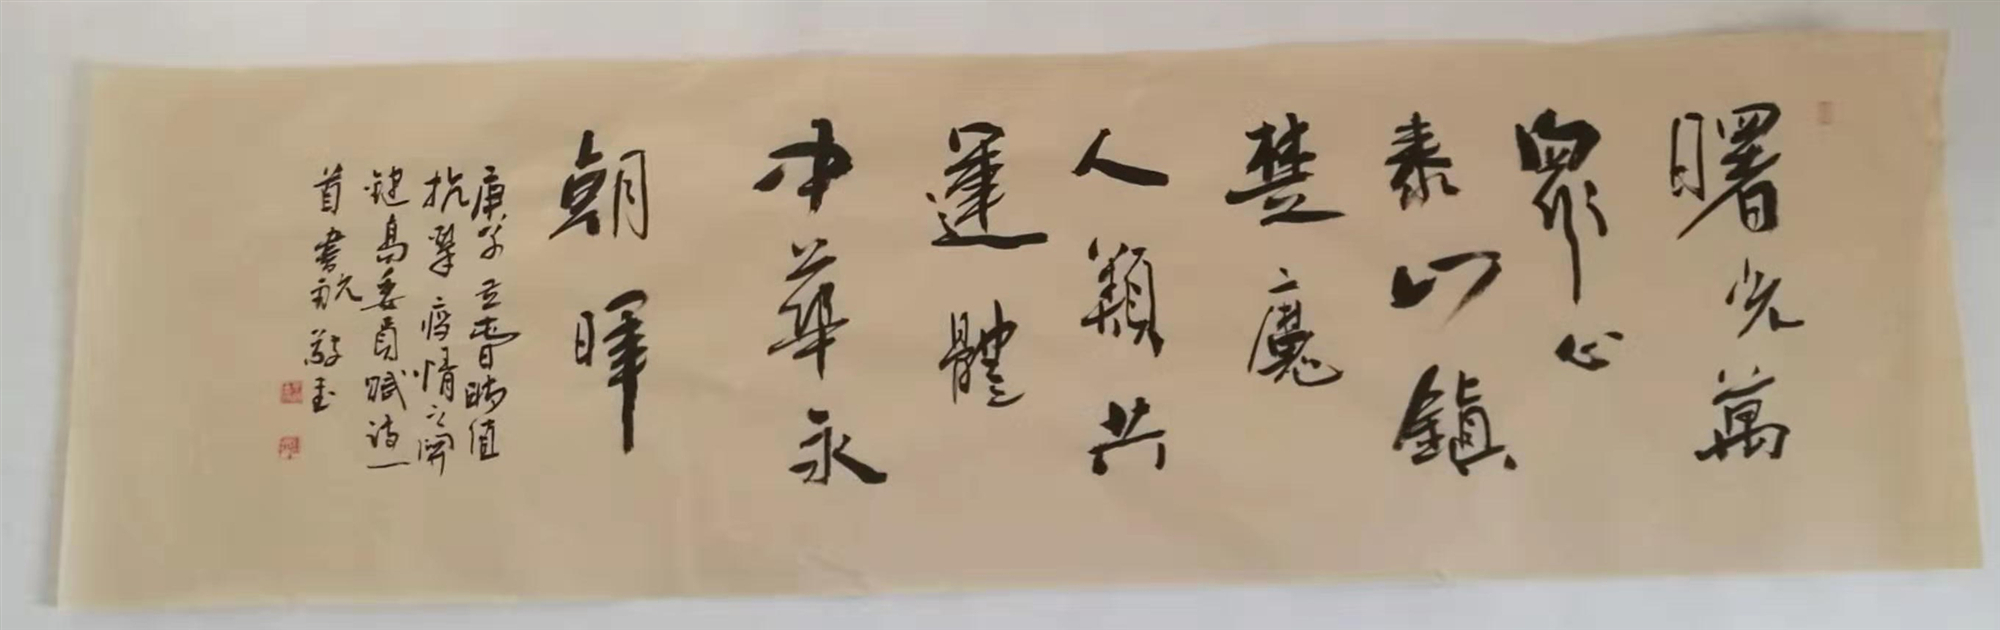 曙光萬
眾心
泰山鎮
楚魔
人類共
運體
中華永
朝暉
庚子立春時值
抗擊疫情之關
鍵高委員賦詩一
首書